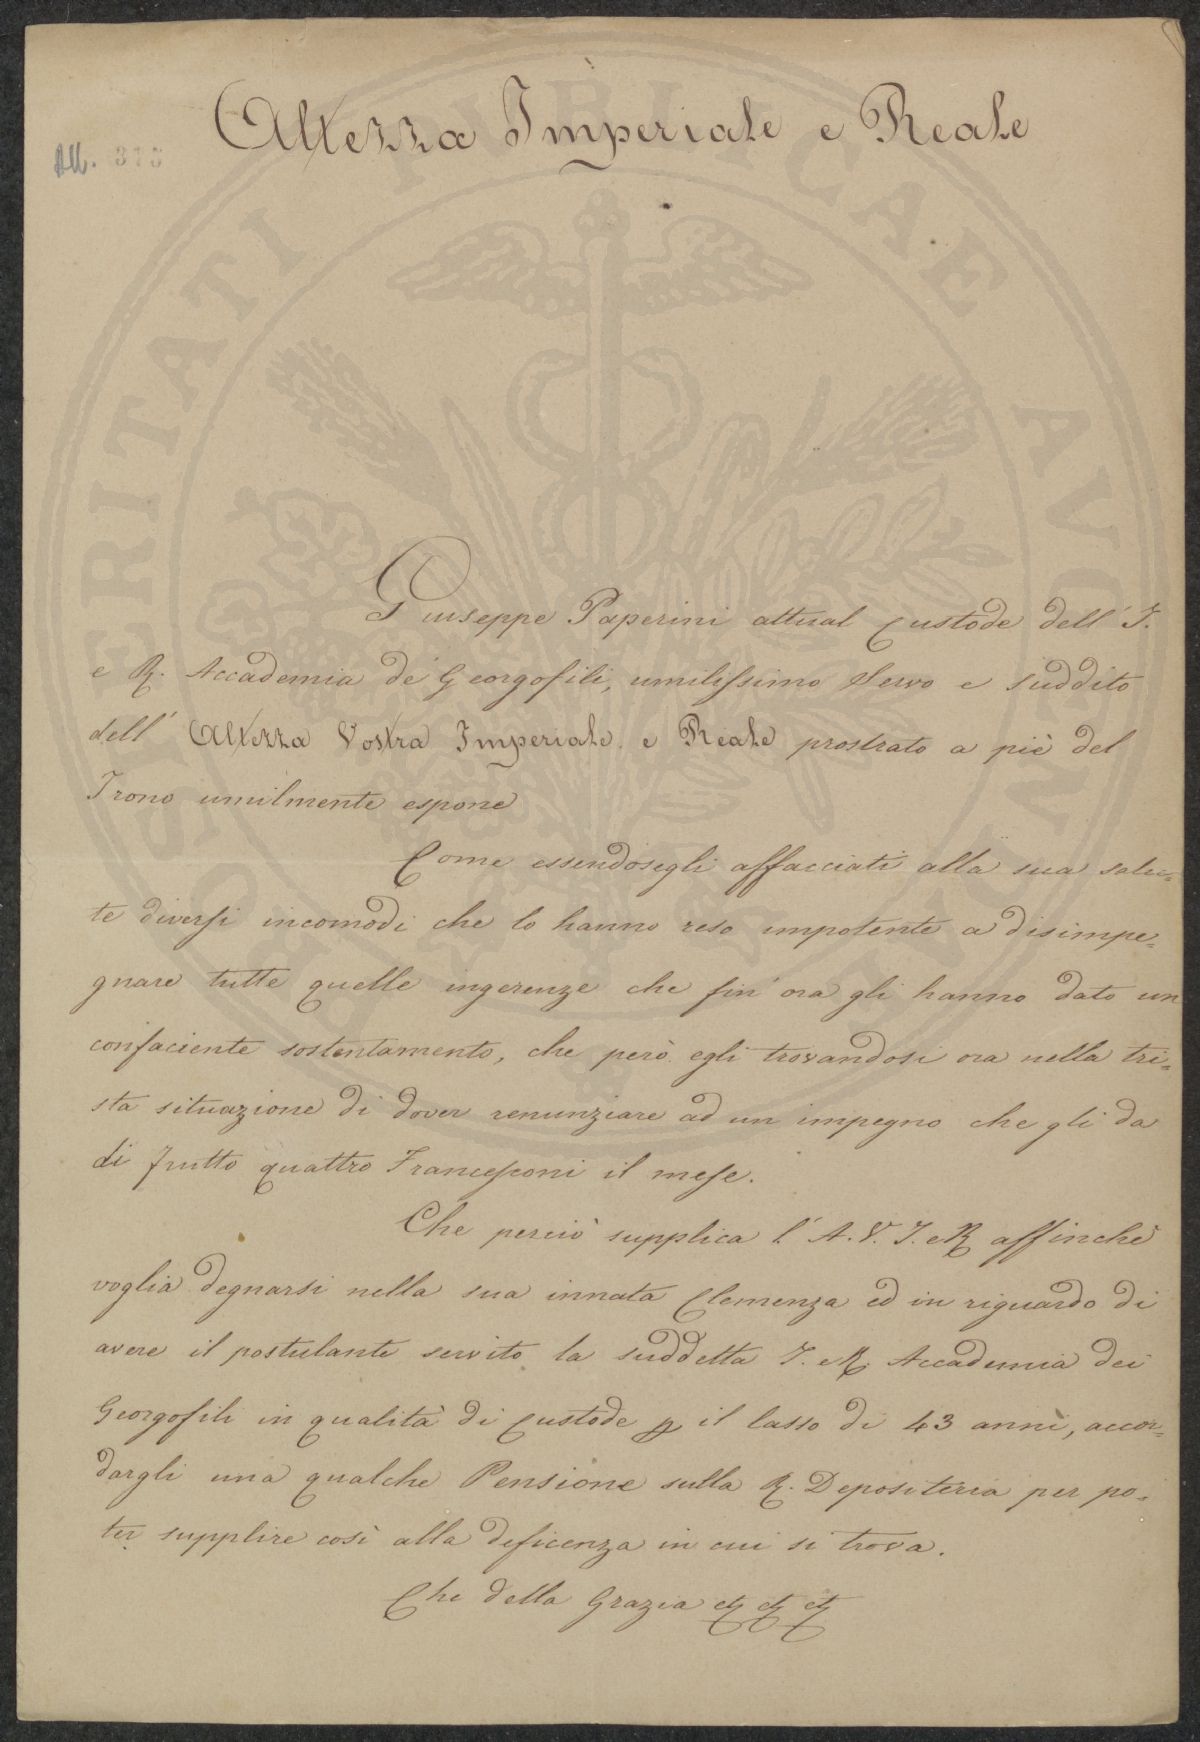 Altezza Imperiale e Reale
All. 313
Giuseppe Paperini attual Custode dell' I.
e R. Accademia de' Georgofili, umilissimo Servo e Suddito
dell' Altezza Vostra Imperiale e Reale prostrato a piè del
Trono umilmente espone
Come essendosegli affacciati alla sua salu=
te diversi incomodi che lo hanno reso impotente a disimpe=
gnare tutte quelle ingerenze che fin' ora gli hanno dato un
confaciente sostentamento, che però egli trovandosi ora nella tri=
sta situazione di dover renunziare ad un impegno che gli da
di frutto quattro Francesconi il mese.
Che perciò supplica l' A. V. I. e R. affinchè
voglia degnarsi nella sua innata Clemenza ed in riguardo di
avere il postulante servito la suddetta I. e R. Accademia dei
Georgofili in qualità di Custode p il lasso di 43 anni, accor=
dargli una qualche Pensione sulla R. Depositeria per po=
ter supplire così alla deficenza in cui si trova.
Che della Grazia et et et